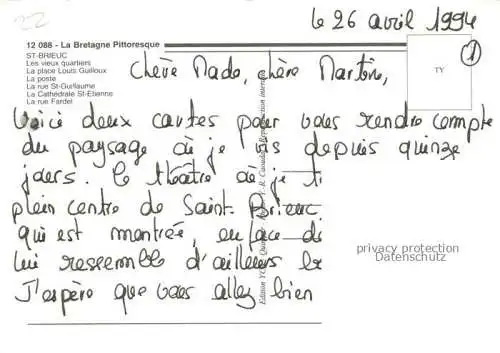 22
le 26 avril 1994
12 088 - La Bretagne Pittoresque
ST-BRIEUC
Les vieux quartiers
La place Louis Guilloux
La poste
La rue St-Guillaume
La Cathédrale St-Etienne
La rue Fardel
TY
1
Chère Mado, chère Martine,
Voici deux cartes pour vous rendre compte
du paysage où je vis depuis quinze
jours. Le théâtre où je t
plein centre de Saint-Brieuc.
qui est montrée, en face de
lui ressemble d'ailleurs be
J'espère que vous allez bien
Reproduction interdite
privacy protection
Datenschutz